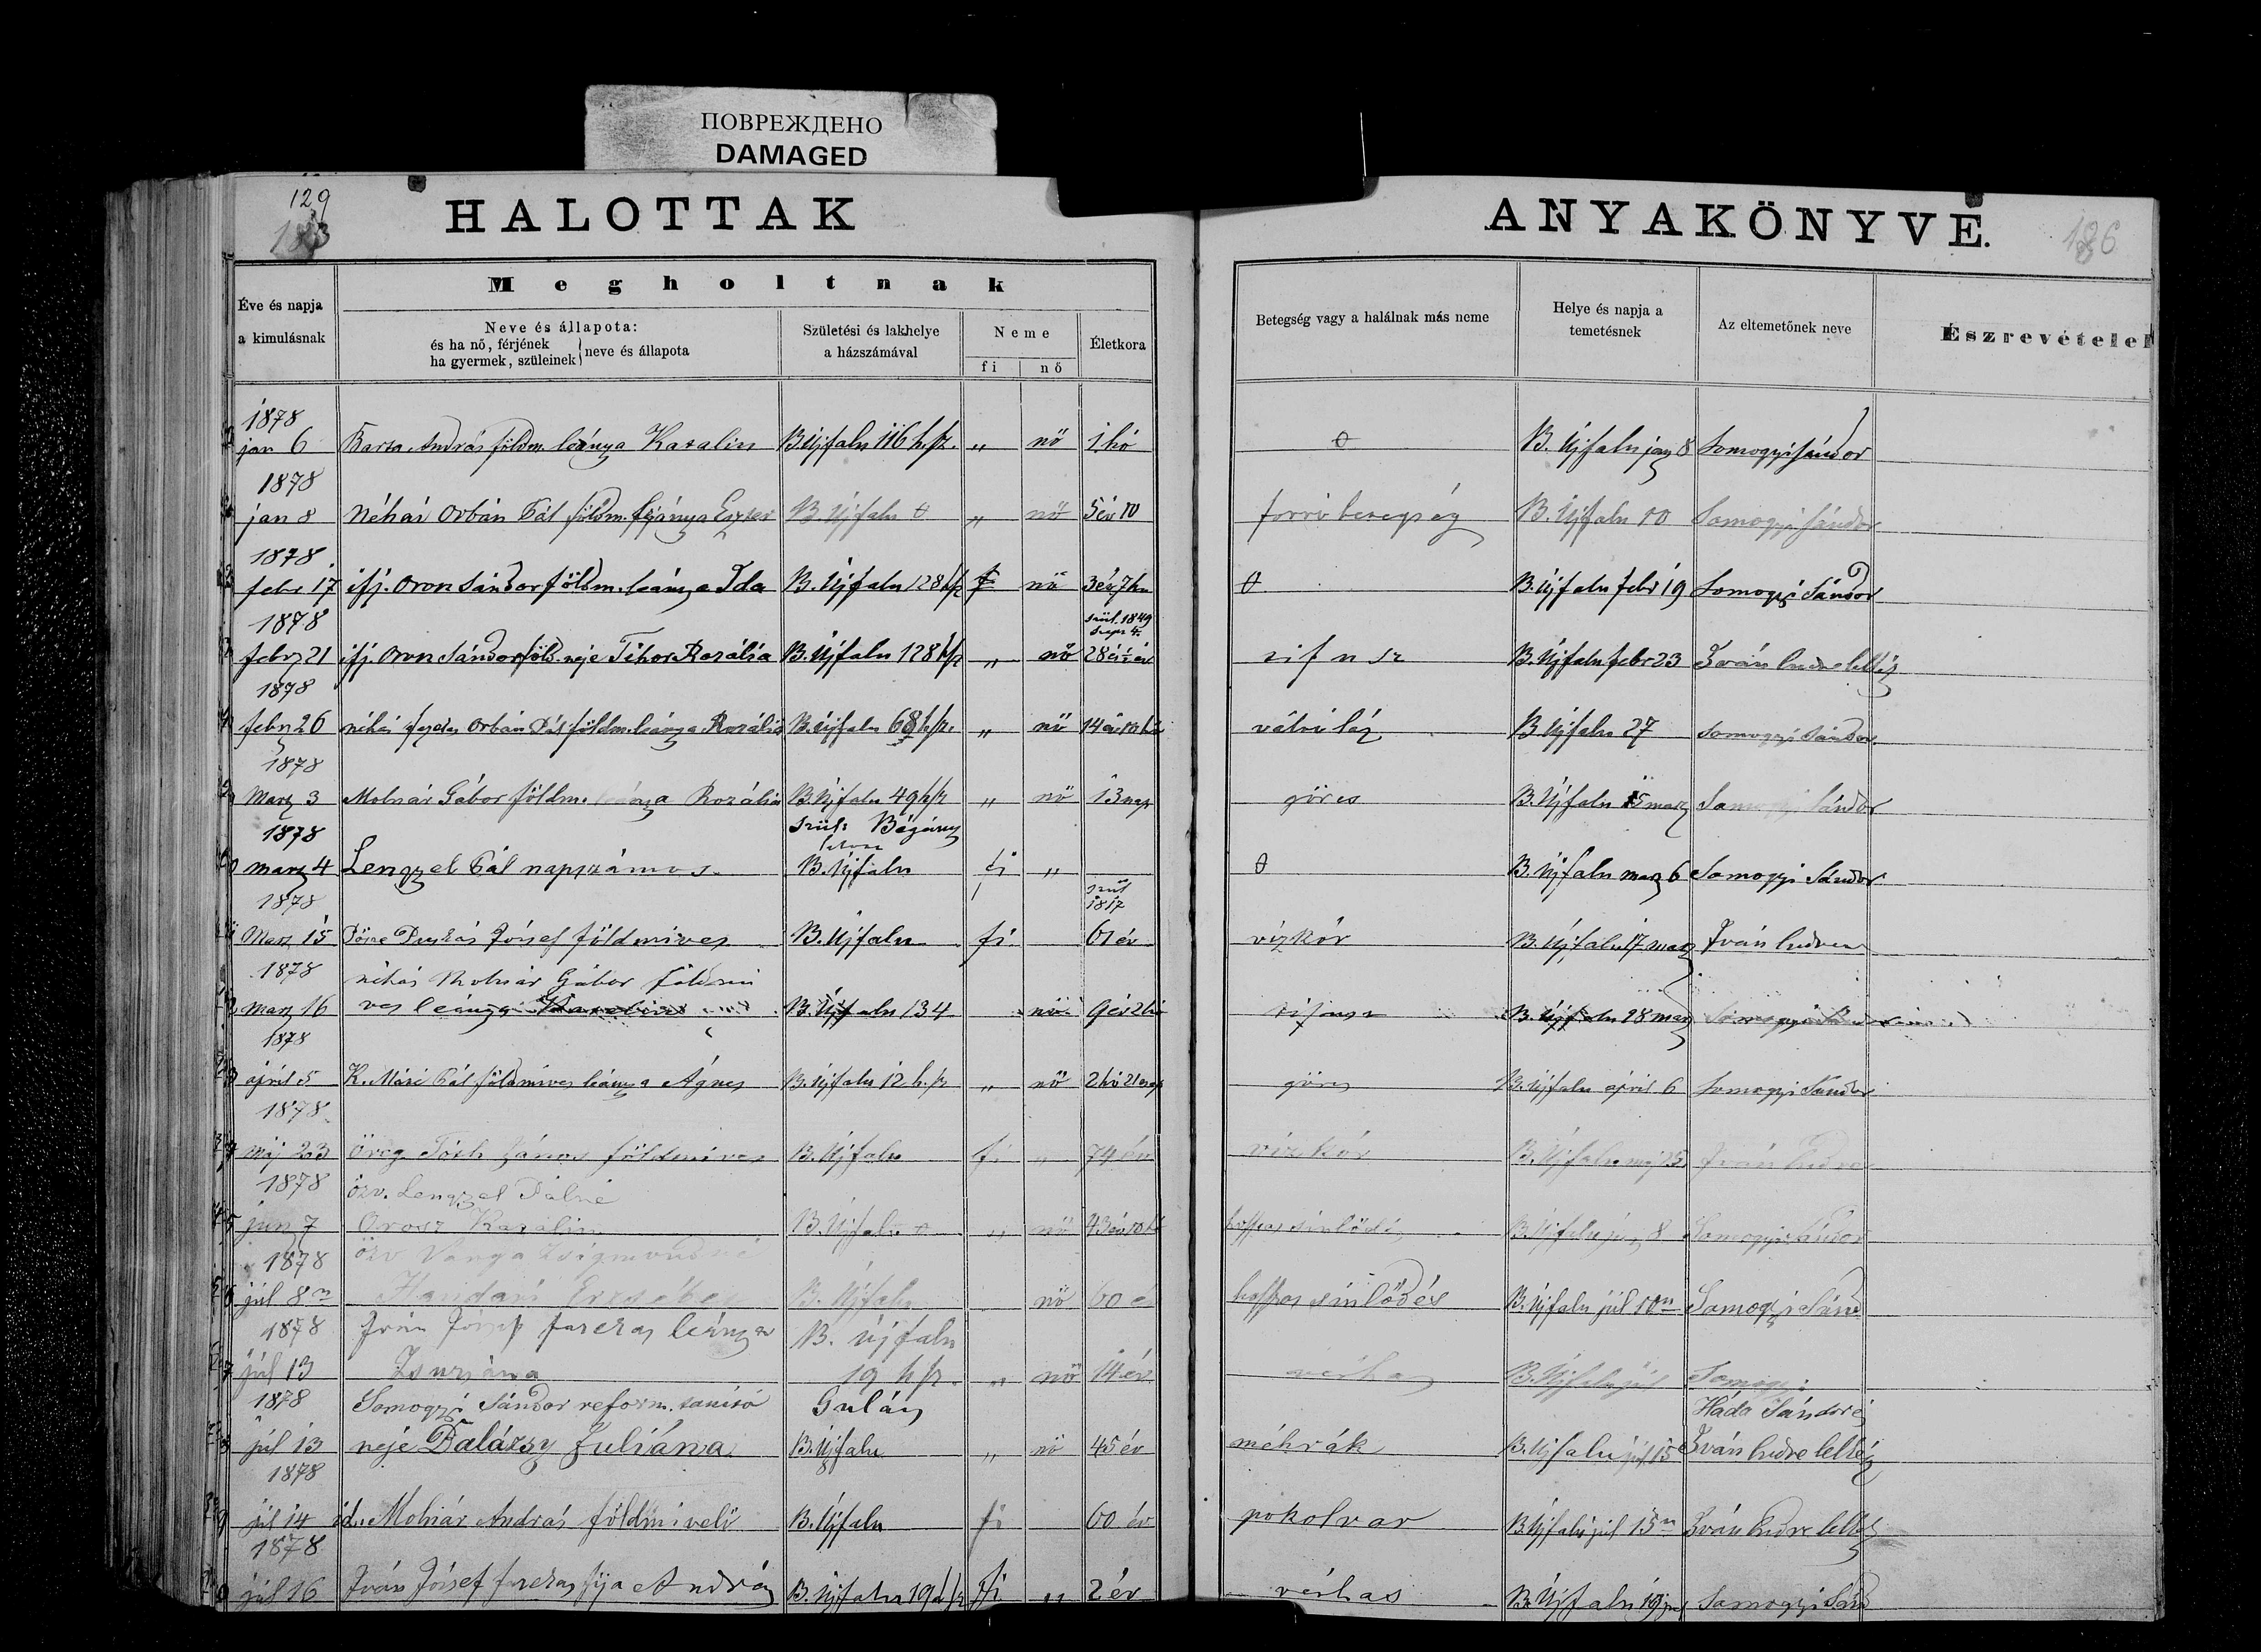 ПОВРЕЖДЕНО
DAMAGED
129
HALOTTAK
ANYAKÖNYVE.
186
Megholtnak
Éve és napja
a kimulásnak
Neve és állapota:
és ha nő, férjének
ha gyermek, szüleinek
neve és állapota
Születési és lakhelye
a házszámával
Neme
fi nő
Életkora
Betegség vagy a halálnak más neme
Helye és napja a
temetésnek
Az eltemetőnek neve
Észrevételek
1878
jan 6 András földm. leánya Katalin B. Újfalu 116 hsz. „ nő 1 hó B. Újfalu jan 8 Somogyi Sándor
1878
jan 8 Néhai Orbán Pál földm. Eszter B. Újfalu „ nő 5 év 10 forró betegség B. Újfalu 10 Somogyi Sándor
1878
febr 17 ifj. Oros Sándor földm. leánya Ida B. Újfalu 128 hsz nő 3 év 7 hó B. Újfalu febr 19 Somogyi Sándor
1878
szül. 1849
Sept 4.
febr 21 ifj. Oros Sándor föld. neje Tihor Rozália B. Újfalu 128 hsz „ nő 28 és ½ év tifusz B. Újfalu febr 23 Iván Endre lelkész
1878
febr 26 néhai Orbán Pál földm. leánya Rozália B. Újfalu 68 hsz. „ nő 14 év váltó láz B. Újfalu 27 Somogyi Sándor
1878
Marz 3 Molnár Gábor földm. leánya Rozália B. Újfalu 49 hsz „ nő 13 nap görcs B. Újfalu 5 marz Somogyi Sándor
1878
szül: Bégány
marz 4 Lengyel Pál napszámos B. Újfalu fi „ B. Újfalu marz 6 Somogyi Sándor
1878
szül
1817
Marz 15 Puskás József földmíves B. Újfalu fi. 61 év vizkór B. Újfalu 17 marz Iván Endre
1878 néhai Molnár Gábor földmi
marz 16 ves leánya B. Újfalu 134 nő tifusz B. Újfalu 18 marz
1878
april 5 K. Máré Pál földmíves leánya Ágnes B. Újfalu 12 h.sz „ nő 2 hó 21 nap görcs B. Újfalu april 6 Somogyi Sándor
1878
máj 23 Öreg Tóth János földmíves B. Újfalu fi „ 74 év vizkór B. Újfalu máj 25 Iván Endre
1878 özv. Lengyel Pálné
jun 7 Orosz Katalin B. Újfalu „ nő 43 év B. Újfalu 8 Somogyi Sándor
1878 özv Varga Zsigmondné
júl 8n Erzsébet B. Újfalu nő 60 é sinlődés B. Újfalu júl 10n Somogyi Sánd
1878 Iván József fazekas leánya B. Újfalu
júl 13 Zsuzsána 19 hsz. „ nő 14 év vérhas B. Újfalu júl Somogyi
1878 Somogyi Sándor reform. tanító Gulács
Háda Sándor és
júl 13 neje Balázsy Juliána B. Újfalu „ nő 45 év méhrák B. Újfalu júl 15 Iván Endre lelkész
1878
júl 14 id. Molnár András földmívelő B. Újfalu fi 60 év pokolvar B. Újfalu júl 15n Iván Endre lelkész
1878
júl 16 Iván József fazekas fija András B. Újfalu 19 hsz fi „ 2 év vérhas B. Újfalu Somogyi Sánd